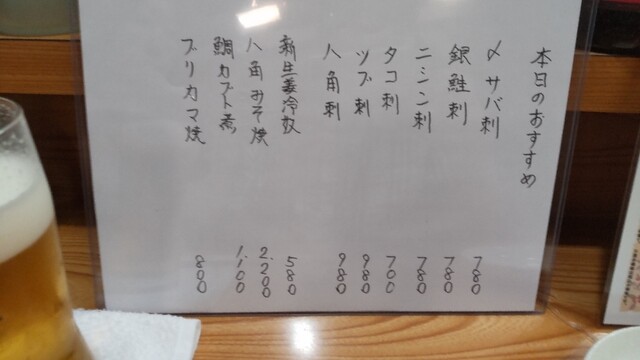 本日のおすすめ
〆サバ刺 780
銀鮭刺 780
ニシン刺 780
タコ刺 700
ツブ刺 980
八角刺 980
新生姜冷奴 580
八角みそ焼 2.200
鯛カブト煮 1.100
ブリカマ焼 800